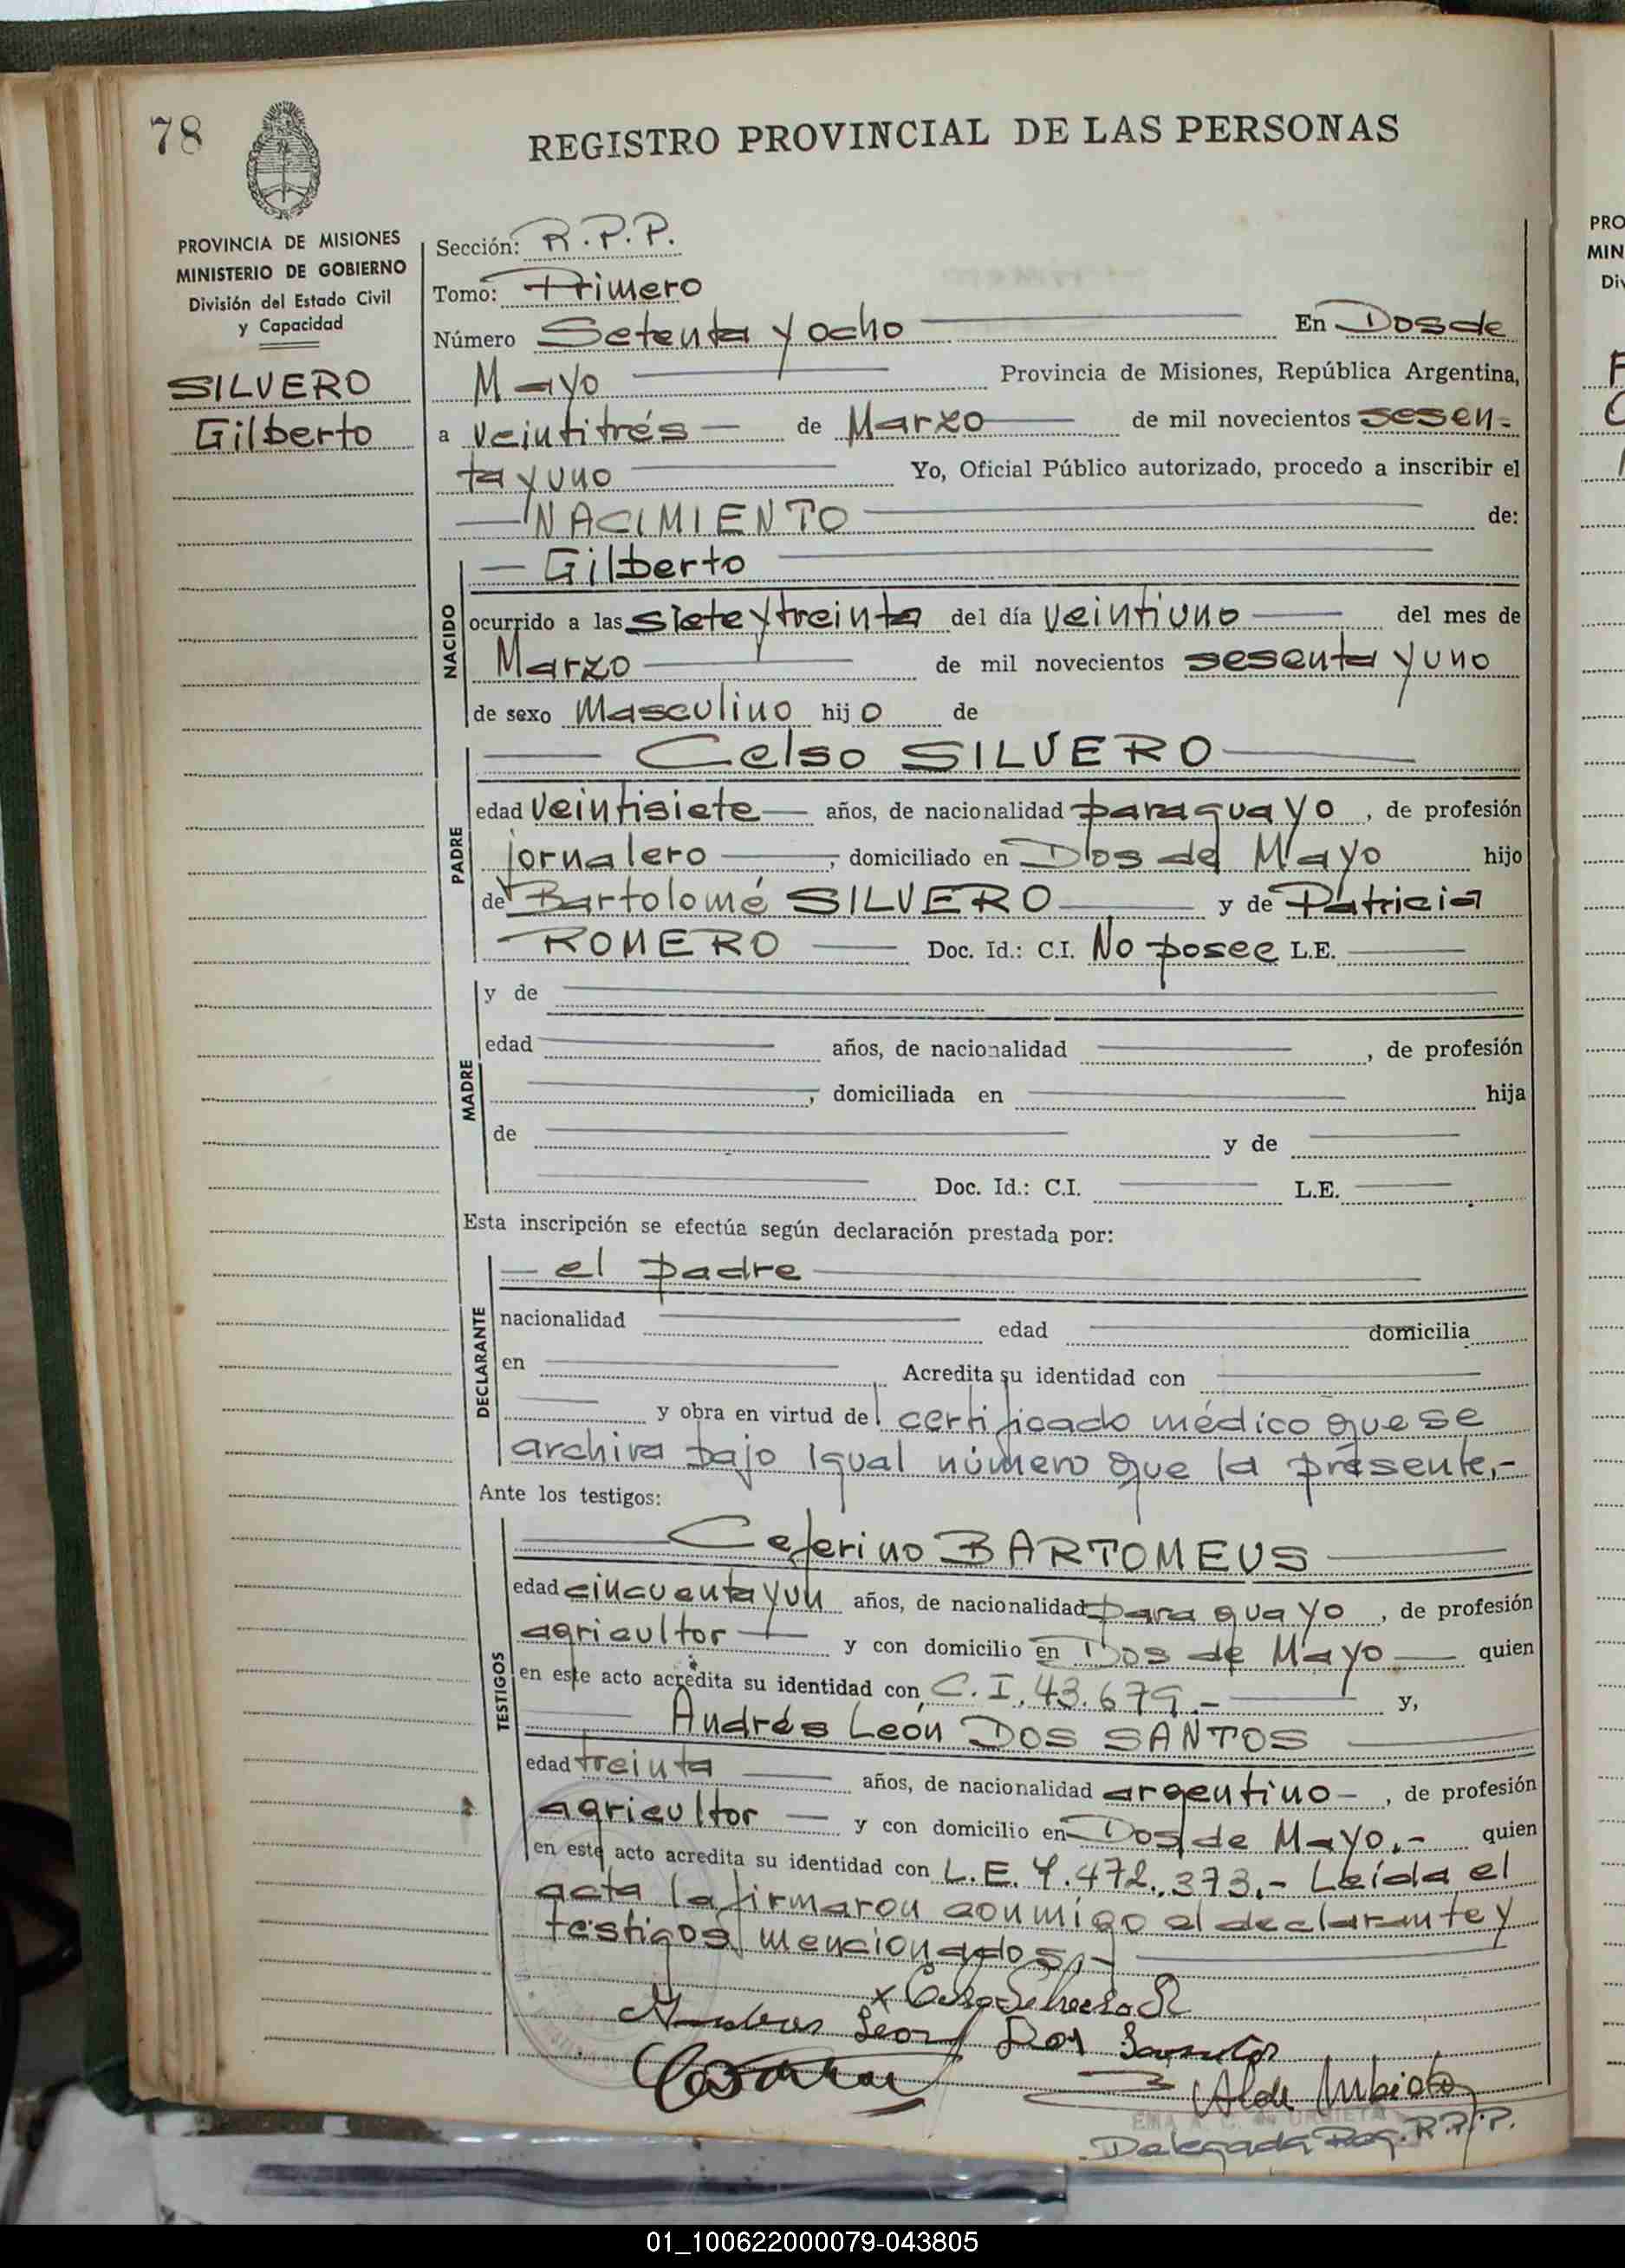 78
REGISTRO PROVINCIAL DE LAS PERSONAS
PROVINCIA DE MISIONES
MINISTERIO DE GOBIERNO
División del Estado Civil
y Capacidad
SILVERO
Gilberto
Sección: R.P.P.
Tomo: Primero
Número Setenta y ocho En Dos de
Mayo Provincia de Misiones, República Argentina,
a veintitrés de Marzo de mil novecientos sesen-
ta y uno Yo, Oficial Público autorizado, procedo a inscribir el
NACIMIENTO de:
Gilberto
NACIDO
ocurrido a las siete y treinta del día veintiuno del mes de
Marzo de mil novecientos sesenta y uno
de sexo Masculino hijo de
Celso SILVERO
PADRE
edad veintisiete años, de nacionalidad paraguayo, de profesión
jornalero, domiciliado en Dos de Mayo hijo
de Bartolomé SILVERO y de Patricia
ROMERO Doc. Id.: C.I. No posee L.E.
y de
MADRE
edad años, de nacionalidad , de profesión
, domiciliada en hija
de y de
Doc. Id.: C.I. L.E.
Esta inscripción se efectúa según declaración prestada por:
el padre
DECLARANTE
nacionalidad edad domicilia
en Acredita su identidad con
y obra en virtud del certificado médico que se
archiva bajo igual número que la presente.-
Ante los testigos:
TESTIGOS
Ceferino BARTOMEUS
edad cincuenta y un años, de nacionalidad paraguayo, de profesión
agricultor y con domicilio en Dos de Mayo quien
en este acto acredita su identidad con C.I. 43.679.- y,
Andrés León DOS SANTOS
edad treinta años, de nacionalidad argentino-, de profesión
agricultor y con domicilio en Dos de Mayo.- quien
en este acto acredita su identidad con L.E. 7.472.373.- Leída el
acta la firmaron conmigo el declarante y
testigos mencionados.-
x Celso Silvero R
Andres Leon Dos Santos
Delegada Reg. R.P.P.
PRO
MIN
Div
01_100622000079-043805